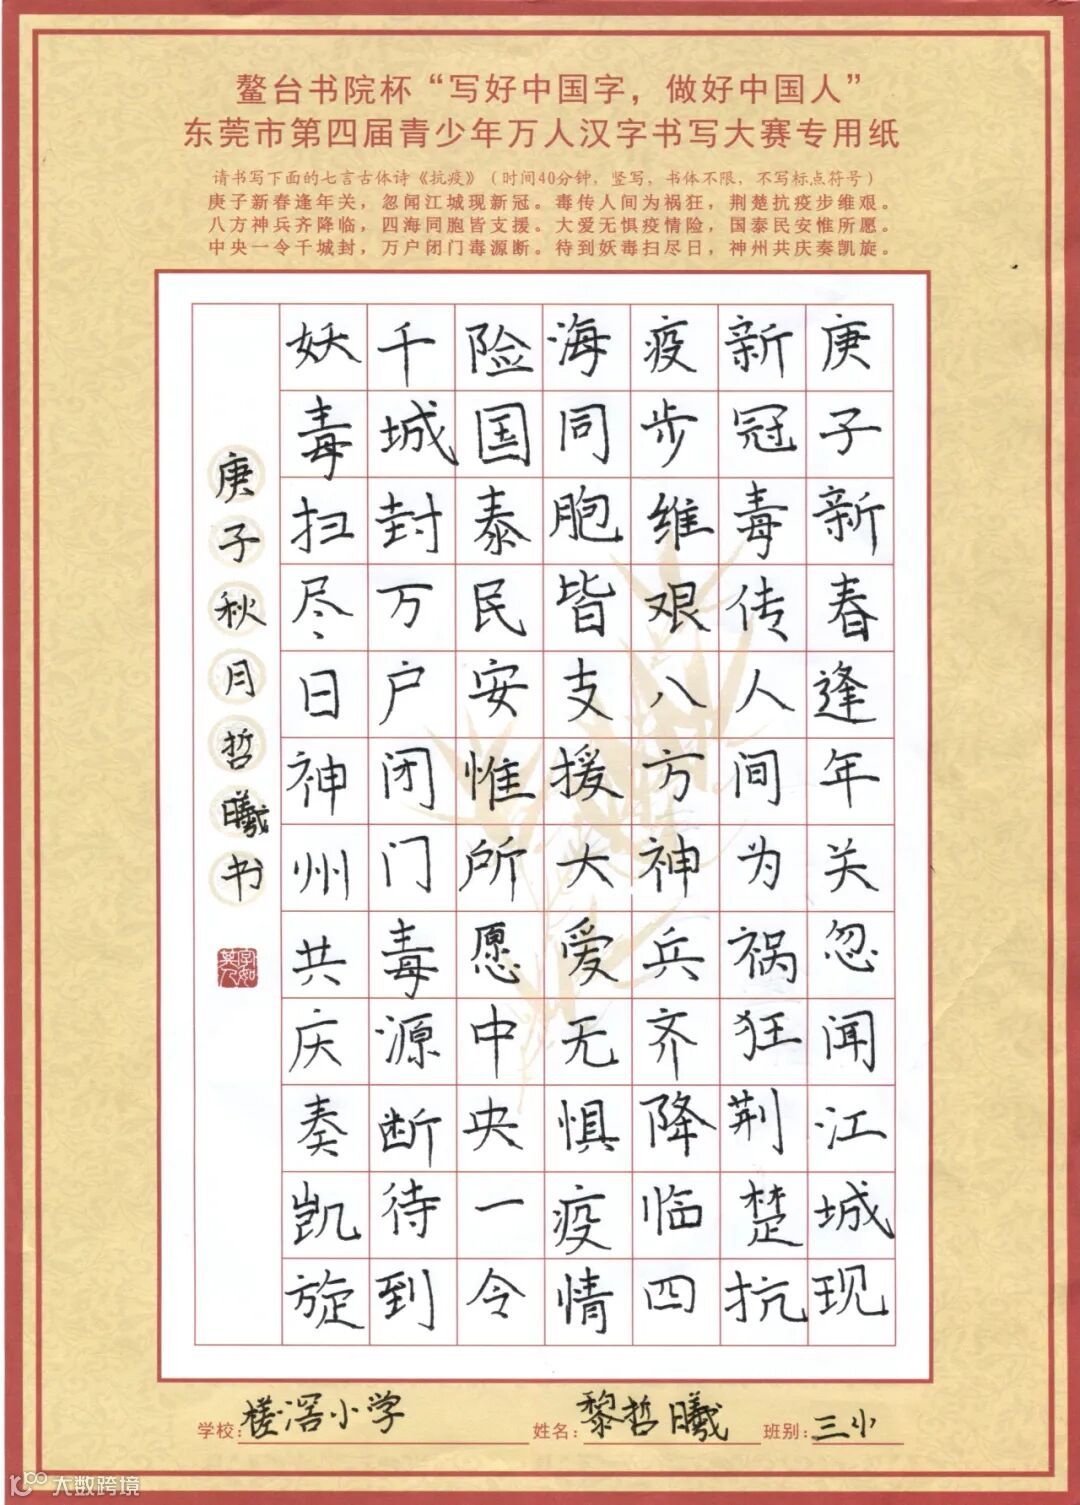 鳌台书院杯“写好中国字，做好中国人”
东莞市第四届青少年万人汉字书写大赛专用纸
请书写下面的七言古体诗《抗疫》（时间40分钟，竖写，书体不限，不写标点符号）
庚子新春逢年关，忽闻江城现新冠。毒传人间为祸狂，荆楚抗疫步维艰。
八方神兵齐降临，四海同胞皆支援。大爱无惧疫情险，国泰民安惟所愿。
中央一令千城封，万户闭门毒源断。待到妖毒扫尽日，神州共庆奏凯旋。
庚子新春逢年关忽闻江城现
新冠毒传人间为祸狂荆楚抗
疫步维艰八方神兵齐降临四
海同胞皆支援大爱无惧疫情
险国泰民安惟所愿中央一令
千城封万户闭门毒源断待到
妖毒扫尽日神州共庆奏凯旋
庚子秋月哲曦书
学校：槎滘小学 姓名：黎哲曦 班别：三小
大数跨境